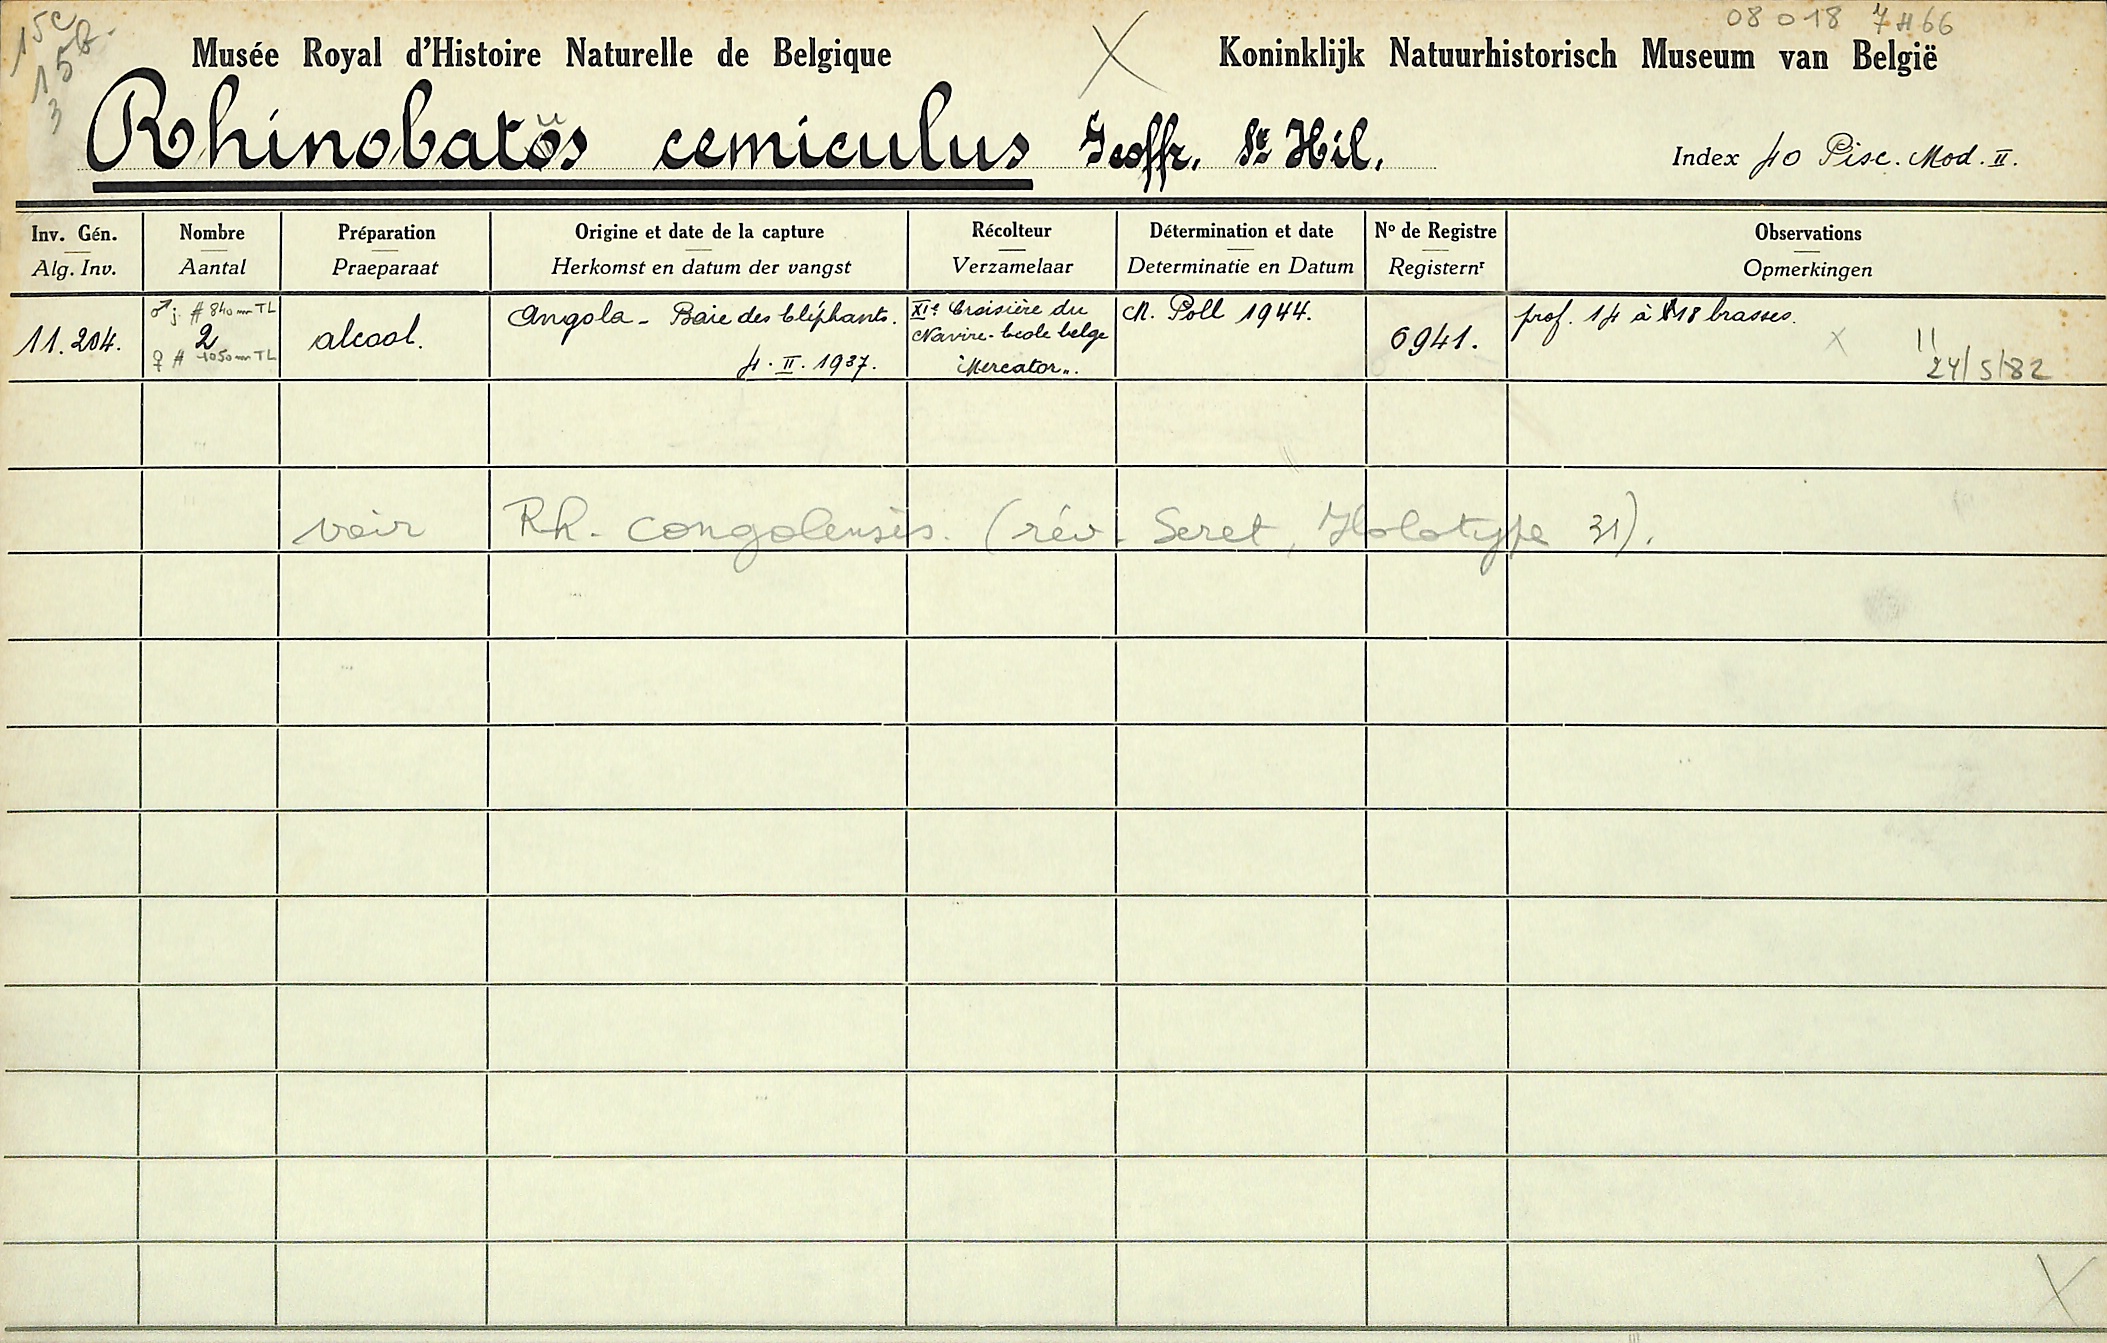 15c
15b.
3
08 0 18 7 # 66
Musée Royal d'Histoire Naturelle de Belgique
Koninklijk Natuurhistorisch Museum van België
Rhinobatos cemiculus Geoffr. St Hil.
Index 40 Pisc. Mod. II.
Inv. Gén. Nombre Préparation Origine et date de la capture Récolteur Détermination et date No de Registre Observations
Alg. Inv. Aantal Praeparaat Herkomst en datum der vangst Verzamelaar Determinatie en Datum Registernr Opmerkingen
11.204.
♂ j. # 840 mm TL
2
♀ # 1050 mm TL
alcool.
Angola - Baie des Eléphants.
4. II. 1937.
XIe Croisière du
Navire-Ecole belge
"Mercator".
M. Poll 1944.
6941.
prof. 14 à 18 brasses.
24/5/82
voir Rh. congolensis. (rév. Seret, Holotype 31).